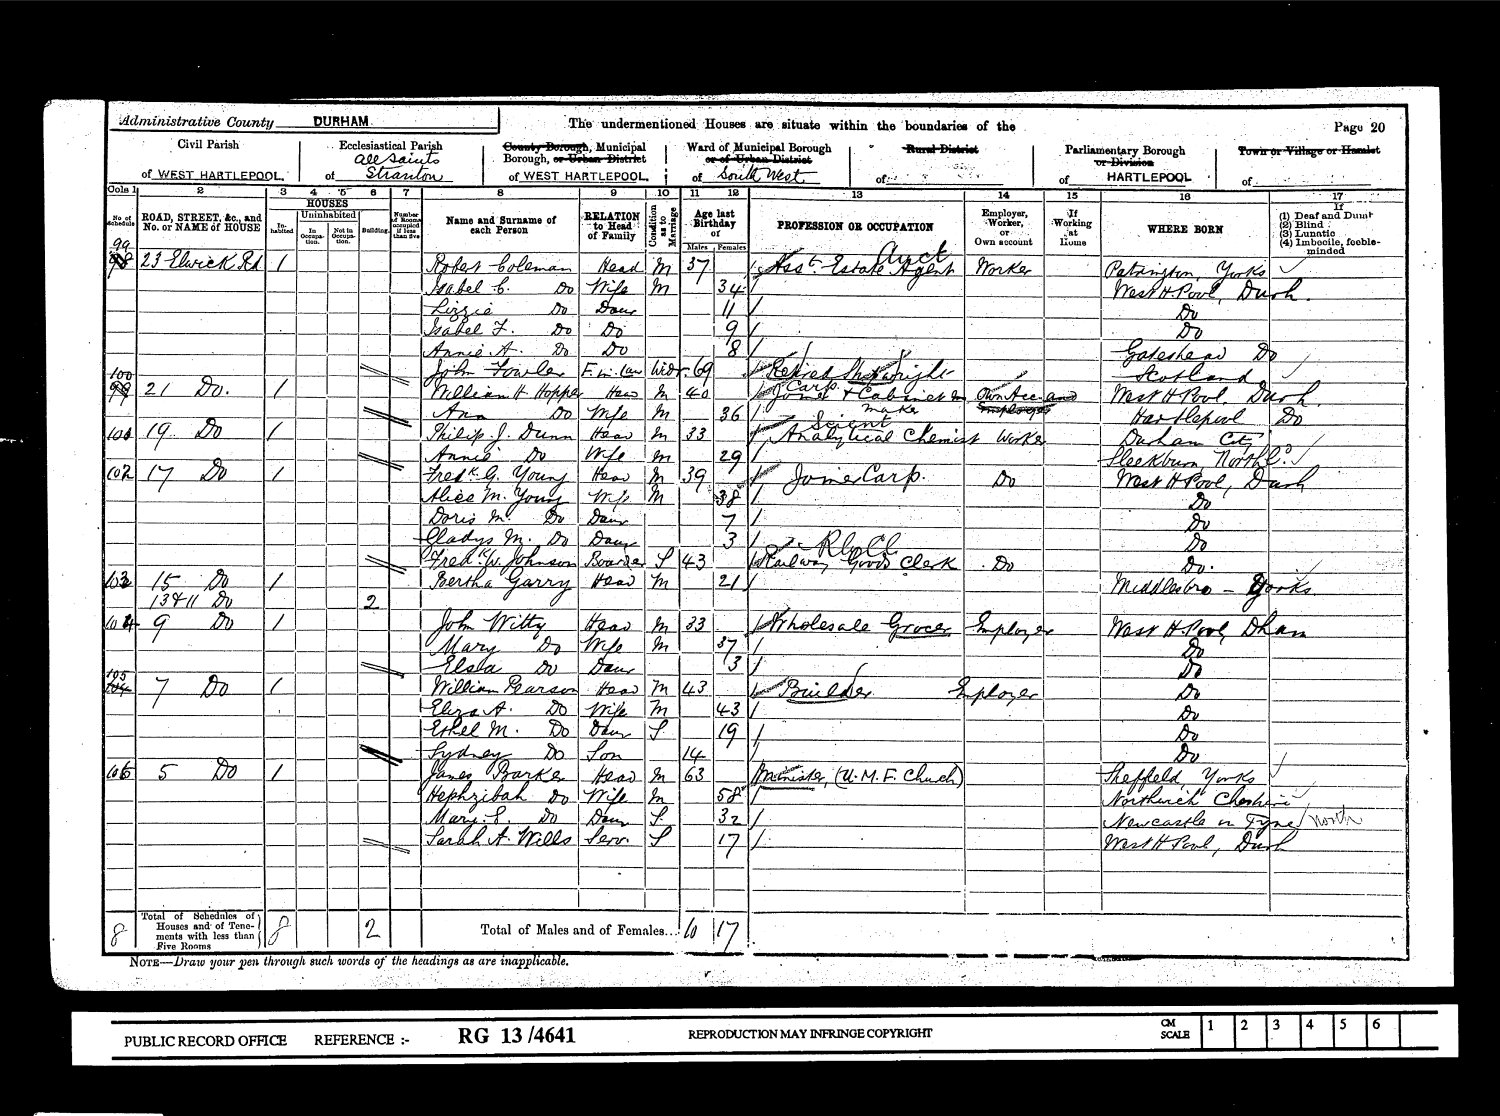 Administrative County DURHAM The undermentioned Houses are situate within the boundaries of the Page 20
Civil Parish of WEST HARTLEPOOL.
Ecclesiastical Parish of All Saints Stranton
County Borough, Municipal Borough, or Urban District of WEST HARTLEPOOL.
Ward of Municipal Borough or of Urban District of South West
Rural District of
Parliamentary Borough or Division of HARTLEPOOL
Town or Village or Hamlet of
Cols 1 2 3 4 5 6 7 8 9 10 11 12 13 14 15 16 17
No. of Schedule
ROAD, STREET, &c., and No. or NAME of HOUSE
HOUSES
Inhabited
Uninhabited
In Occupation.
Not in Occupation.
Building
Number of Rooms occupied if less than five
Name and Surname of each Person
RELATION to Head of Family
Condition as to Marriage
Age last Birthday of
Males Females
PROFESSION OR OCCUPATION
Employer, Worker, or Own account
If Working at Home
WHERE BORN
If
(1) Deaf and Dumb
(2) Blind
(3) Lunatic
(4) Imbecile, feeble-minded
99 98 23 Elwick Rd 1 Robert Coleman Head M 37 Asst. Estate Agent Auct Worker Patrington, Yorks
Isabel C. Do Wife M 34 West H Pool, Durh.
Lizzie Do Daur 11 Do
Isabel F. Do Do 9 Do
Annie A. Do Do 8 Gateshead Do
John Fowler F. in Law Widr. 69 Retired Shipwright Scotland
100 99 21 Do. 1 William H. Hopper Head M 40 Joiner Carp. & Cabinet maker Own Acc West H Pool, Durh.
Ann Do Wife M 36 Hartlepool Do
101 19 Do 1 Philip J. Dunn Head M 33 Analytical Chemist Scient Worker Durham City
Annie Do Wife M 29 Sleekburn, North'd.
102 17 Do 1 Fredk. G. Young Head M 39 Joiner Carp. Do West H Pool, Durh
Alice M. Young Wife M 38 Do
Doris M. Do Daur 7 Do
Gladys M. Do Daur 3 Do
Fredk. W. Johnson Boarder S 43 Railway Goods Clerk Rly Cl Do. Do.
103 15 Do 1 Bertha Garry Head M 21 Middlesbro - Yorks
13 & 11 Do 2
104 9 Do 1 John Witty Head M 33 Wholesale Grocer Employer West H Pool, Dham
Mary Do Wife M 37 Do
Elsa Do Daur 3 Do
105 104 7 Do 1 William Pearson Head M 43 Builder Employer Do
Eliza A. Do Wife M 43 Do
Ethel M. Do Daur S 19 Do
Sydney Do Son 14 Do
106 5 Do 1 James Barker Head M 63 Minister, (U.M.F. Church) Sheffield, Yorks
Hephzibah Do Wife M 58 Northwich Cheshire
Mary. E. Do Daur S. 32 Newcastle on Tyne North
Sarah A. Wills Serv. S 17 West H Pool, Durh
8 Total of Schedules of Houses and of Tenements with less than Five Rooms 8 2 Total of Males and of Females... 10 17
NOTE—Draw your pen through such words of the headings as are inapplicable.
PUBLIC RECORD OFFICE REFERENCE :- RG 13/4641 REPRODUCTION MAY INFRINGE COPYRIGHT CM SCALE 1 2 3 4 5 6